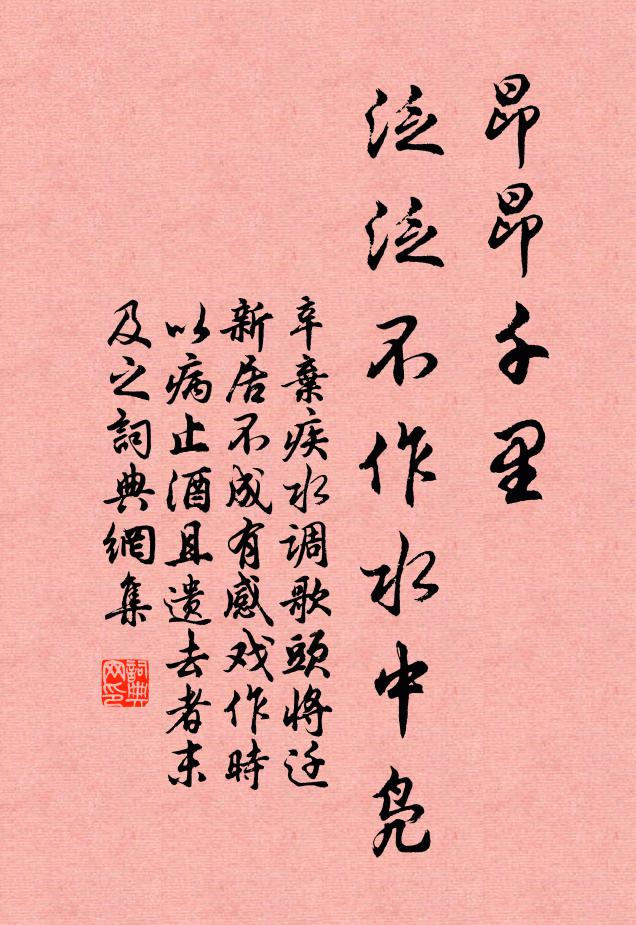 昂昂千里
泛泛不作水中凫
辛棄疾水调歌頭將迁
新居不成有感戏作時
以病止酒且遣去者末
及之詞典網集
詞典
网印